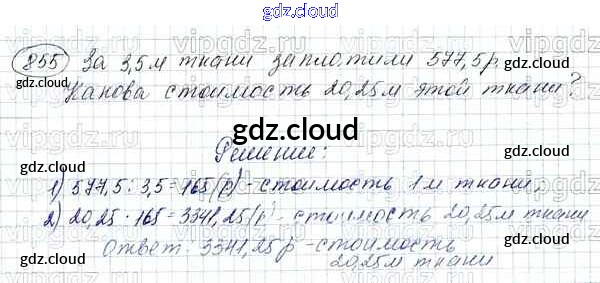 gdz.cloud gdz.cloud gdz.cloud
855 За 3,5 м ткани заплатили 577,5 р.
Какова стоимость 20,25 м этой ткани?
gdz.cloud
Решение:
1) 577,5 : 3,5 = 165 (р) - стоимость 1 м ткани.
2) 20,25 · 165 = 3341,25 (р) - стоимость 20,25 м ткани
Ответ: 3341,25 р - стоимость
20,25 м ткани
gdz.cloud gdz.cloud gdz.cloud